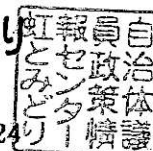 自治体議
員政策情
報センター
虹とみどり
24